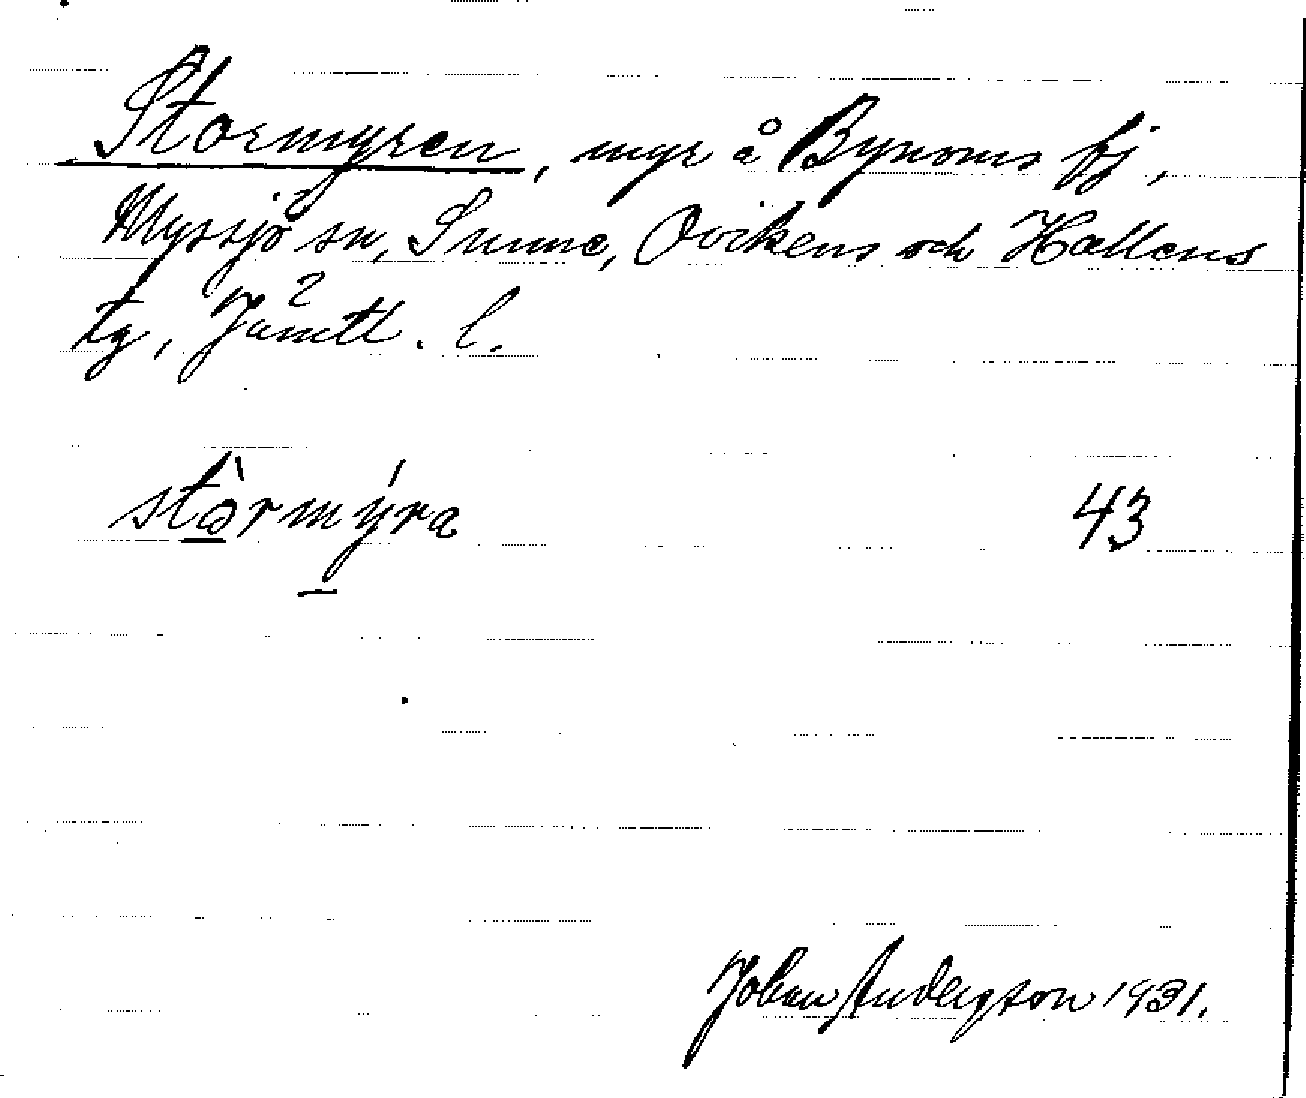 Stormyren, myr å Bynoms fj,
Myssjö sn, Sunne, Ovikens och Hallens
tg, Jämtl. l.
stòrmýra 43
Johan Anderson 1931.